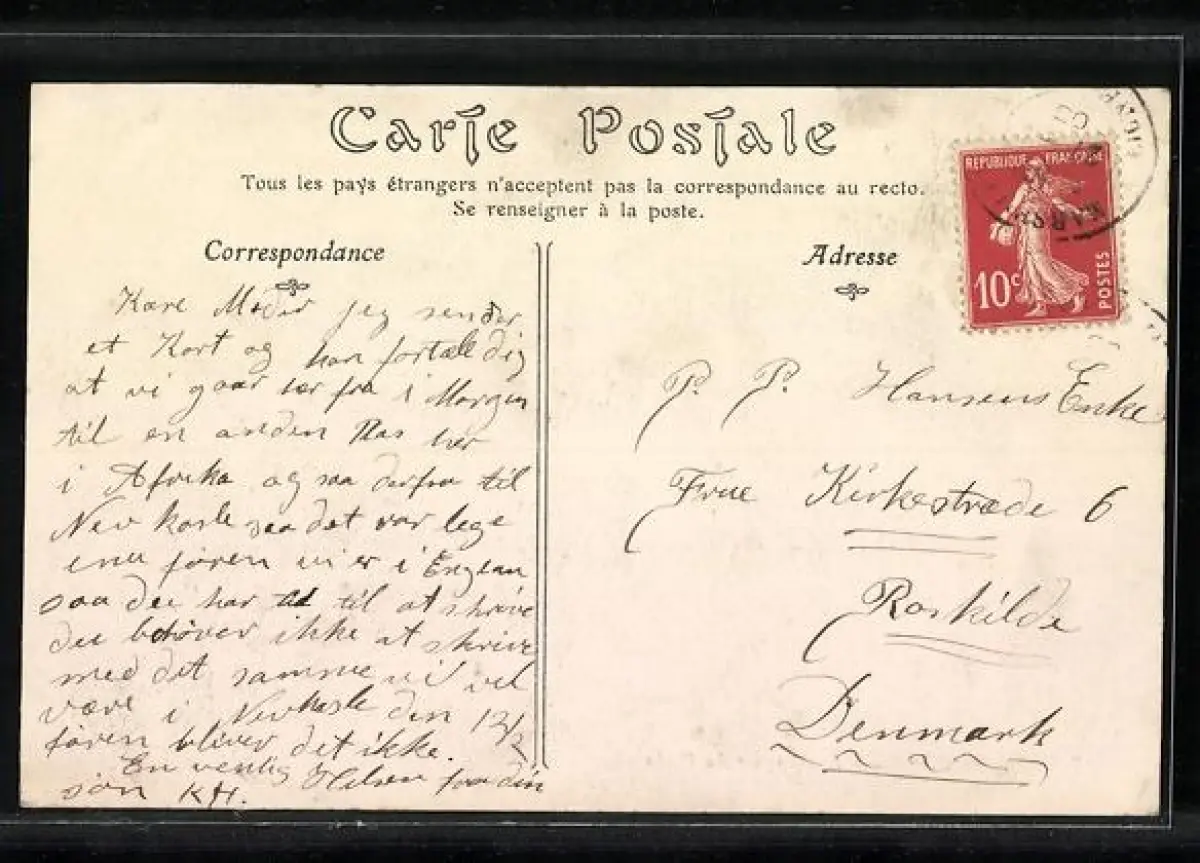 Carte Postale
Tous les pays étrangers n'acceptent pas la correspondance au recto.
Se renseigner à la poste.
Correspondance
Kare Moder jeg sender
et Kort og kan fortælle dig
at vi gaar her fra i Morgen
til en anden Plas her
i Afrika og saa derfra til
New kasle saa det var lege
enu føren vi er i Englan
saa du har til at skrive
du behøver ikke at skrive
med det samme vi vel
være i Newkasle den 12/2
føren bliver det ikke.
En venlig Hilsen fra din
søn KH.
Adresse
P. P. Hansens Enke
Frue Kirkestræde 6
Roskilde
Denmark
REPUBLIQUE FRANÇAISE
10c
POSTES